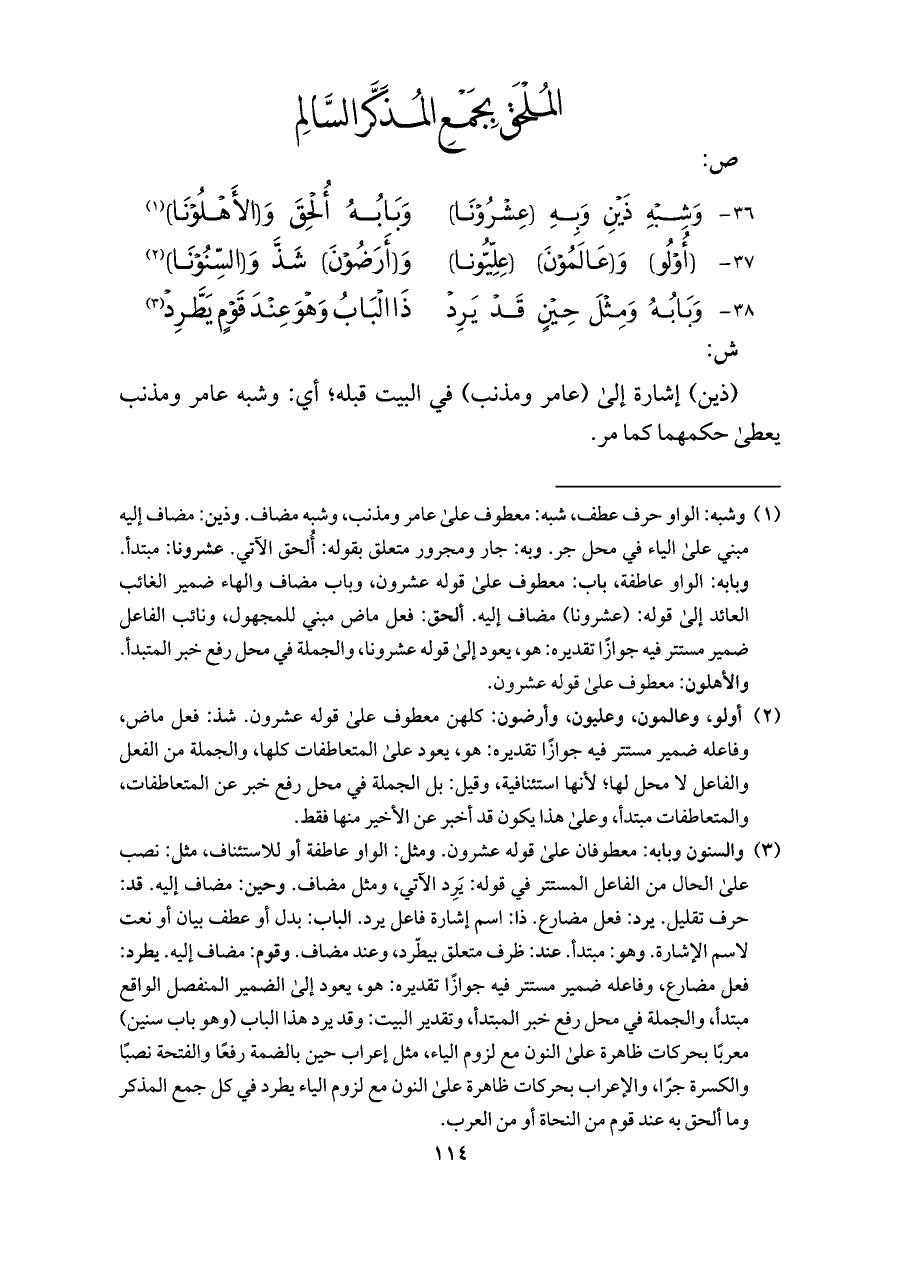 المُلْحَق بِجَمْعِ المُذَكَّرِ السَّالِمِ
ص:
٣٦- وَشِبْهِ ذَيْنِ وَبِهِ (عِشْرُوْنَا) وَبَابُهُ أُلْحِقَ وَ(الأَهْلُوْنَا)(١)
٣٧- (أُوْلُو) وَ(عَالَمُوْنَ) (عِلِّيُّونا) وَ(أَرَضُوْنَ) شَذَّ وَ(السِّنُوْنَا)(٢)
٣٨- وَبَابُهُ وَمِثْلَ حِيْنٍ قَدْ يَرِدْ ذَا البَابُ وَهْوَ عِنْدَ قَوْمٍ يَطَّرِدْ(٣)
ش:
(ذين) إشارة إلىٰ (عامر ومذنب) في البيت قبله؛ أي: وشبه عامر ومذنب
يعطىٰ حكمهما كما مر.
(١) وشبه: الواو حرف عطف، شبه: معطوف علىٰ عامر ومذنب، وشبه مضاف. وذين: مضاف إليه
مبني علىٰ الياء في محل جر. وبه: جار ومجرور متعلق بقوله: أُلحق الآتي. عشرونا: مبتدأ.
وبابه: الواو عاطفة، باب: معطوف علىٰ قوله عشرون، وباب مضاف والهاء ضمير الغائب
العائد إلىٰ قوله: (عشرونا) مضاف إليه. ألحق: فعل ماض مبني للمجهول، ونائب الفاعل
ضمير مستتر فيه جوازًا تقديره: هو، يعود إلىٰ قوله عشرونا، والجملة في محل رفع خبر المتبدأ.
والأهلون: معطوف علىٰ قوله عشرون.
(٢) أولو، وعالمون، وعليون، وأرضون: كلهن معطوف علىٰ قوله عشرون. شذ: فعل ماض،
وفاعله ضمير مستتر فيه جوازًا تقديره: هو، يعود علىٰ المتعاطفات كلها، والجملة من الفعل
والفاعل لا محل لها؛ لأنها استئنافية، وقيل: بل الجملة في محل رفع خبر عن المتعاطفات،
والمتعاطفات مبتدأ، وعلىٰ هذا يكون قد أخبر عن الأخير منها فقط.
(٣) والسنون وبابه: معطوفان علىٰ قوله عشرون. ومثل: الواو عاطفة أو للاستئناف، مثل: نصب
علىٰ الحال من الفاعل المستتر في قوله: يَرِد الآتي، ومثل مضاف. وحين: مضاف إليه. قد:
حرف تقليل. يرد: فعل مضارع. ذا: اسم إشارة فاعل يرد. الباب: بدل أو عطف بيان أو نعت
لاسم الإشارة. وهو: مبتدأ. عند: ظرف متعلق بيطّرد، وعند مضاف. وقوم: مضاف إليه. يطرد:
فعل مضارع، وفاعله ضمير مستتر فيه جوازًا تقديره: هو، يعود إلىٰ الضمير المنفصل الواقع
مبتدأ، والجملة في محل رفع خبر المبتدأ، وتقدير البيت: وقد يرد هذا الباب (وهو باب سنين)
معربًا بحركات ظاهرة علىٰ النون مع لزوم الياء، مثل إعراب حين بالضمة رفعًا والفتحة نصبًا
والكسرة جرًا، والإعراب بحركات ظاهرة علىٰ النون مع لزوم الياء يطرد في كل جمع المذكر
وما ألحق به عند قوم من النحاة أو من العرب.
١١٤